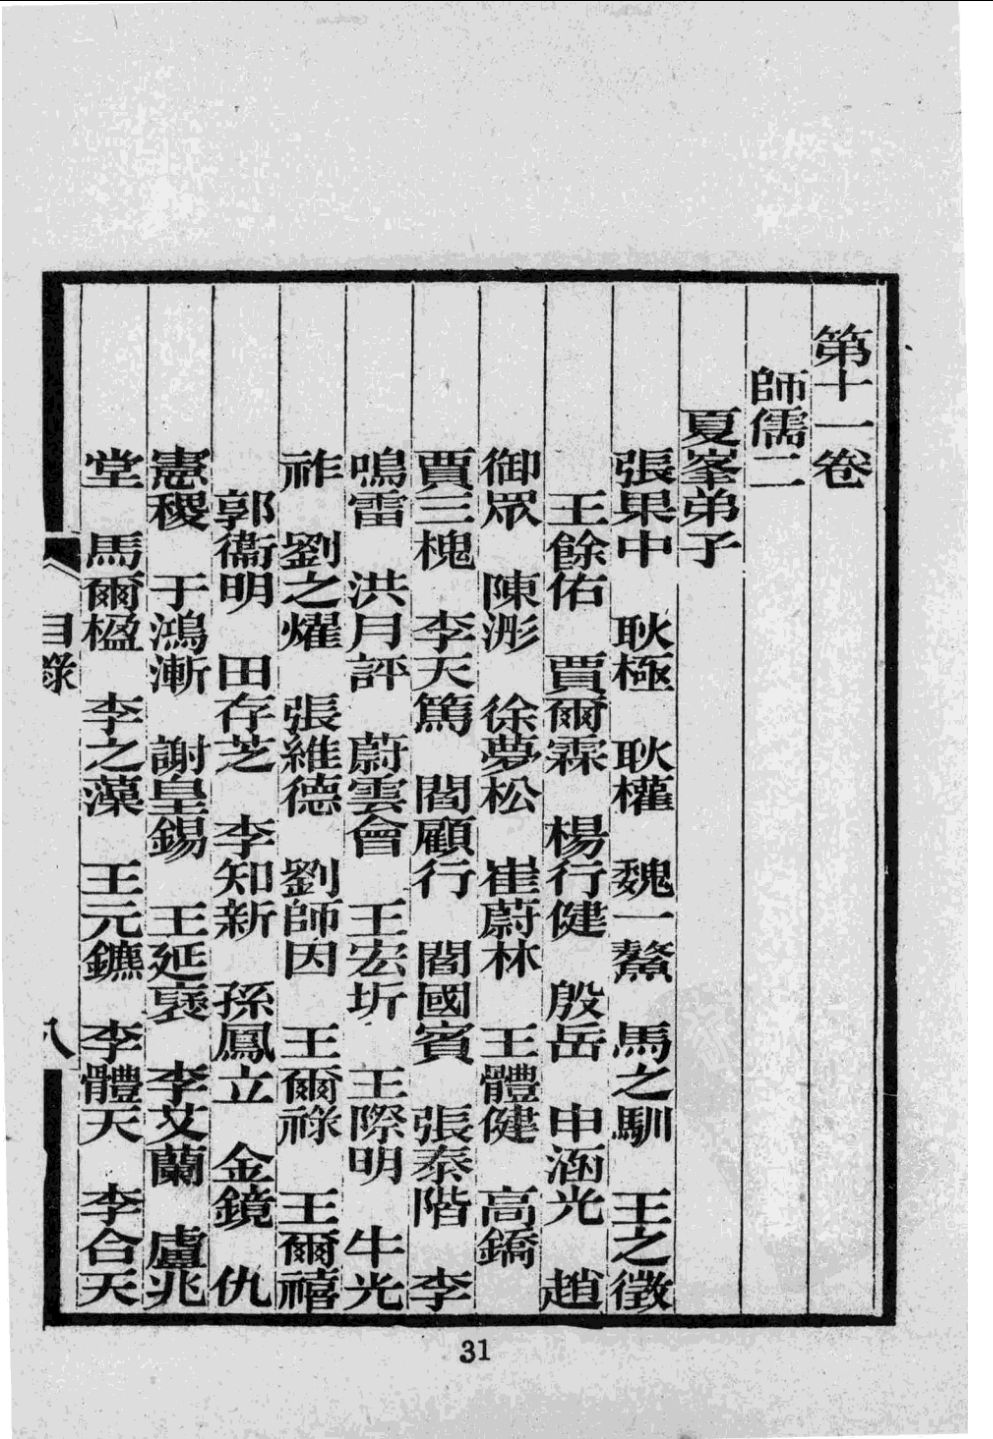 第十一卷
師儒二
夏峯弟子
張果中 耿極 耿權 魏一鰲 馬之馴 王之徵
王餘佑 賈爾霖 楊行健 殷岳 申涵光 趙
御眾 陳浵 徐夢松 崔蔚林 王體健 高鐈
賈三槐 李天篤 閻顧行 閻國賓 張泰階 李
鳴雷 洪月評 蔚雲會 王宏圻 王際明 牛光
祚 劉之燿 張維德 劉師因 王爾祿 王爾禧
郭衞明 田存芝 李知新 孫鳳立 金鏡 仇
憲稷 于鴻漸 謝皇錫 王延褒 李艾蘭 盧兆
堂 馬爾楹 李之藻 王元鑣 李體天 李合天
目錄 八
31